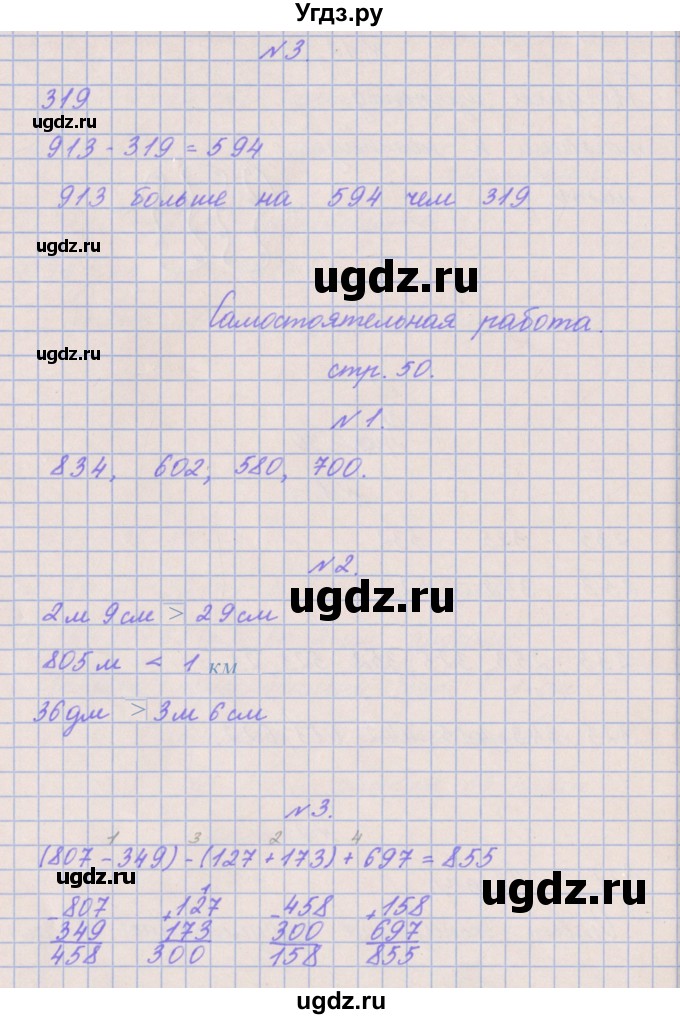 Угдз.ру
№3.
319
ugdz.ru
913 - 319 = 594
913 больше на 594 чем 319
ugdz.ru
ugdz.ru
Самостоятельная работа.
ugdz.ru
стр. 50.
№1.
834, 602, 580, 700.
№2.
ugdz.ru
2м 9см > 29см
805м < 1 км
36дм > 3м 6см
№3.
1 3 2 4
(807 - 349) - (127 + 173) + 697 = 855
ugdz.ru
1
- 807 + 127 - 458 + 158
349 173 300 697
458 300 158 855
ugdz.ru